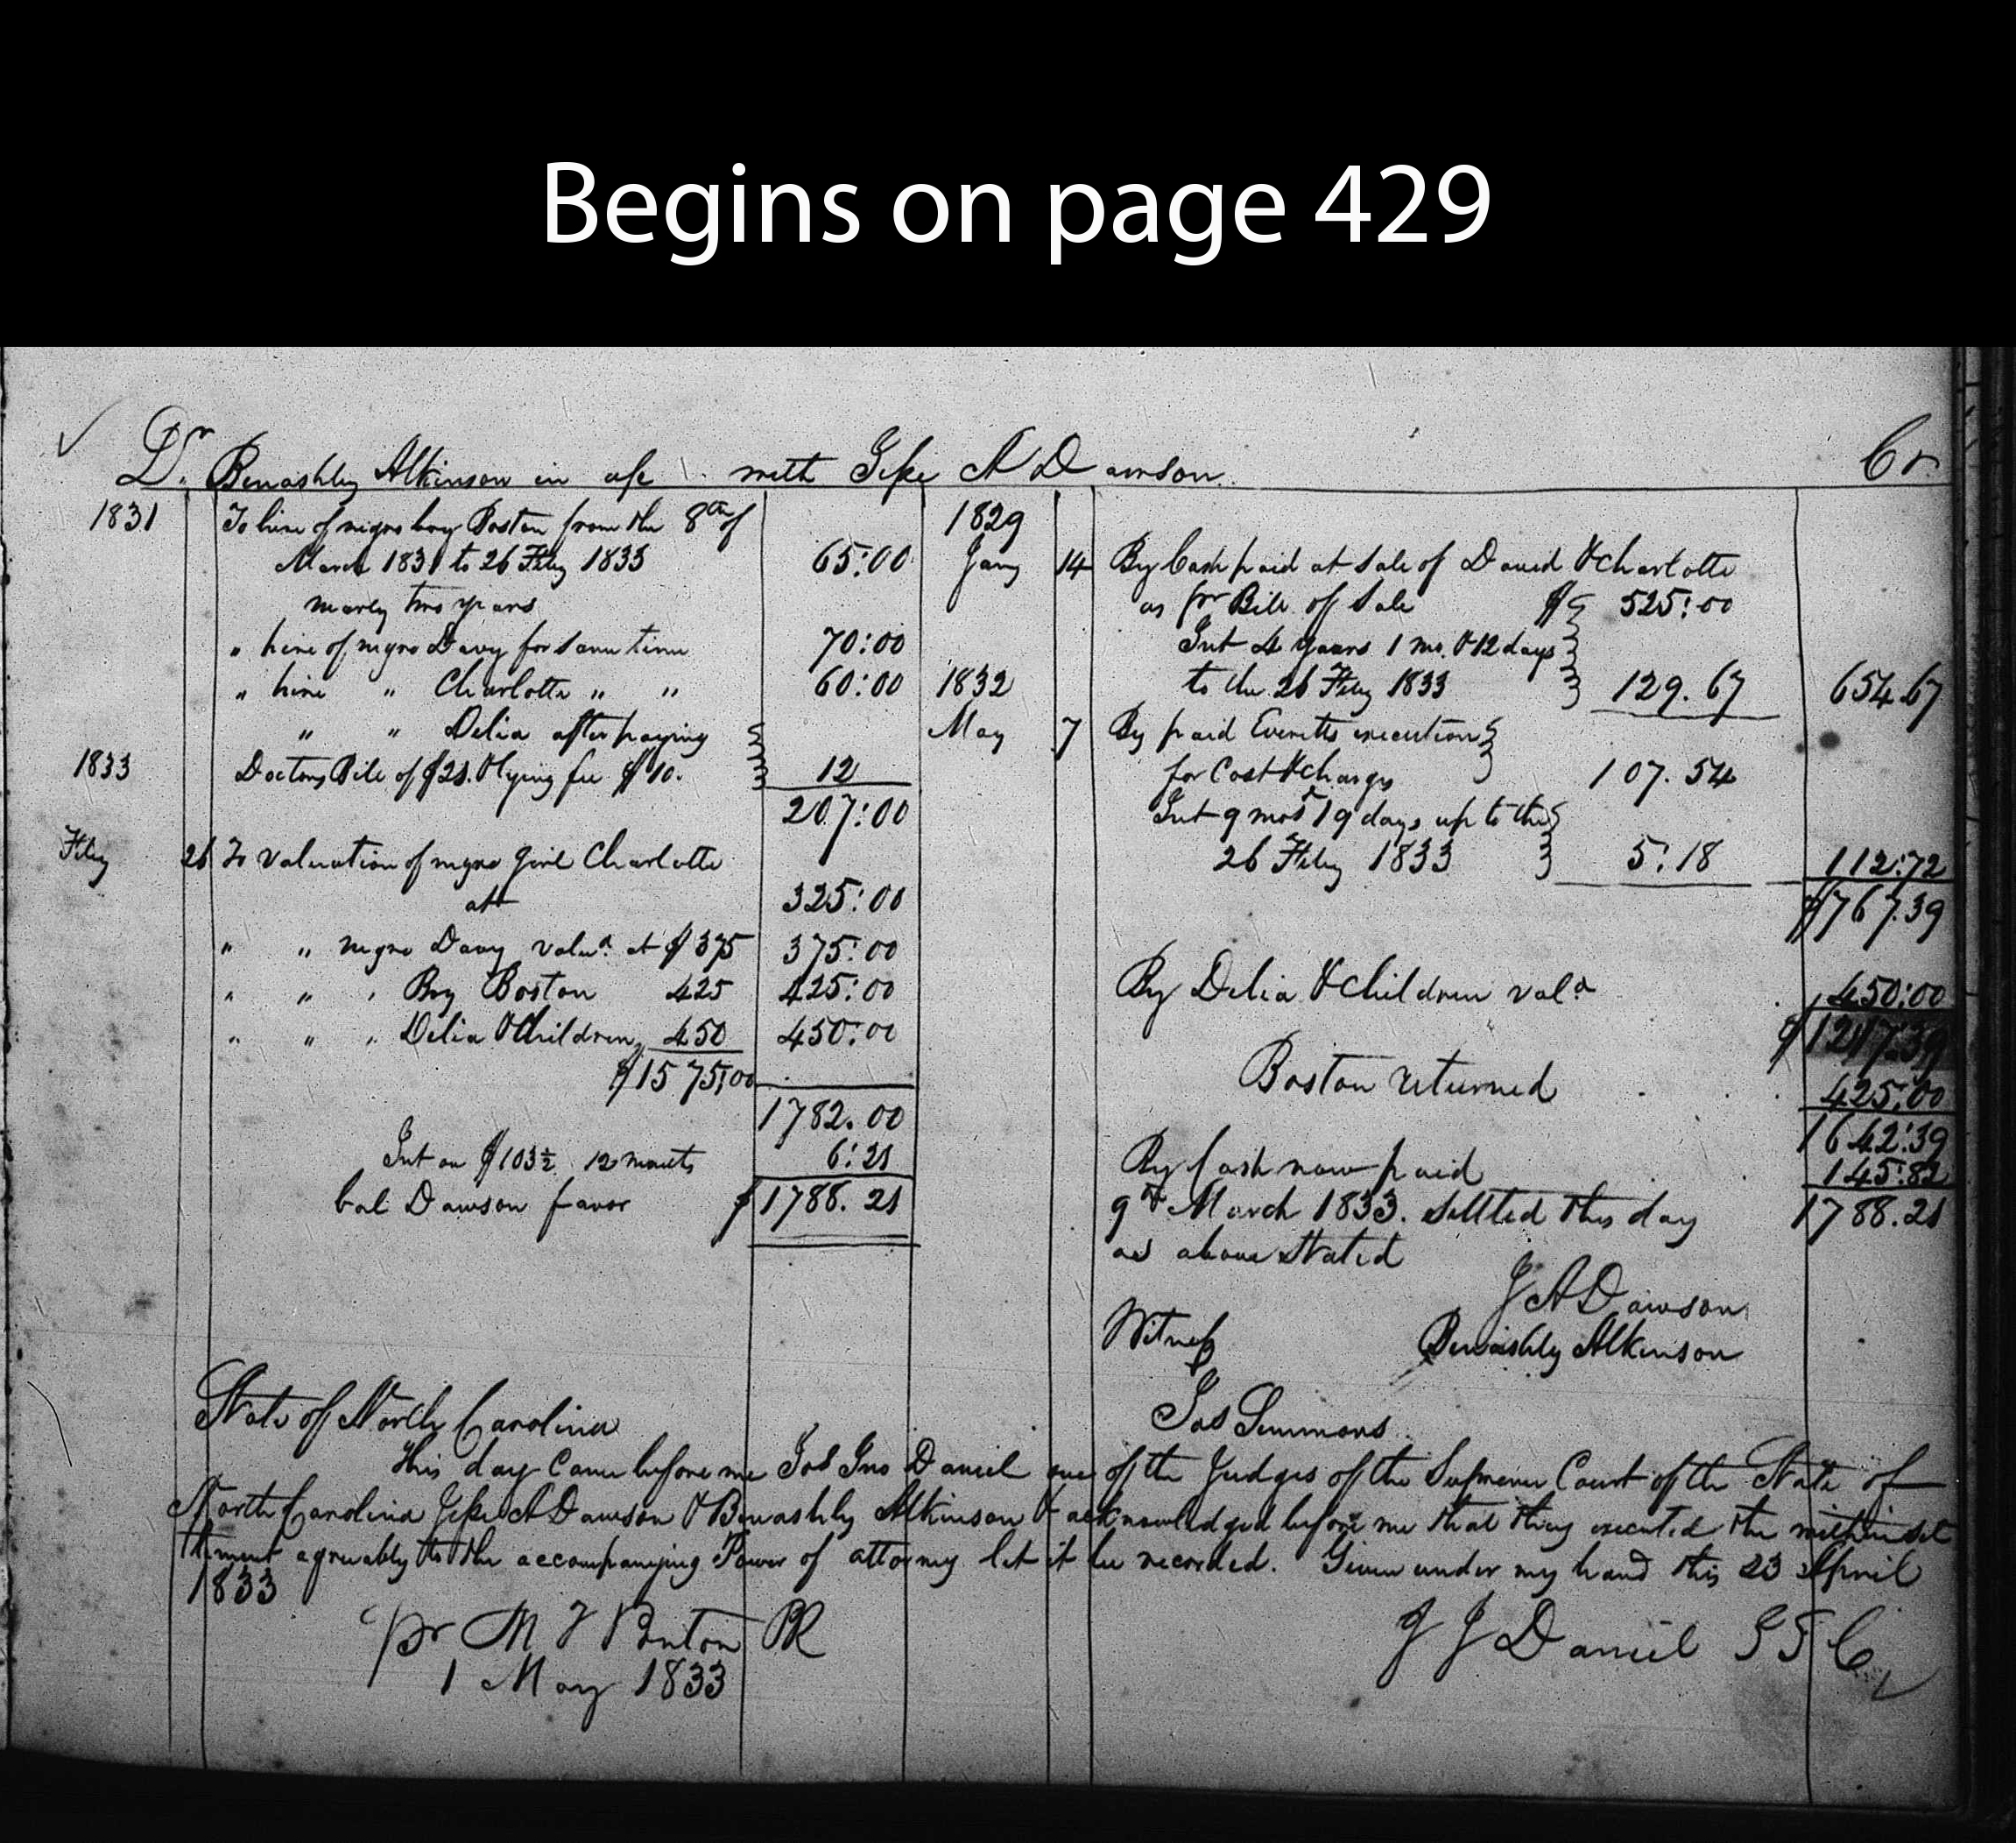 Begins on page 429
Dr. Benashly Atkinson in a/c with Jesse A Dawson Cr
1831 To hire of negro boy Boston from the 8th of
March 1831 to 26 Feby 1833 65:00
nearly two years
" hire of negro Davy for same time 70:00
" hire " Charlotte " " 60:00
" " Delia after paying
1833 Doctors Bill of $21. & lying fee $10. 12
207:00
Feby 26 To valuation of negro girl Charlotte
at 325:00
" " negro Davy valud. at $375 375:00
" " " Boy Boston 425 425:00
" " " Delia & Children 450 450:00
$1575,00
1782.00
Int on $103½ 12 months 6:21
bal Dawson favor $1788.21
1829
Jany 14 By Cash paid at sale of David & Charlotte
as pr Bill of Sale $525:00
Int 4 years 1 mo. & 12 days
1832 to the 26 Feby 1833 129.67 654.67
May 7 By paid Everitts execution
for Cost & charges 107.54
Int 9 mos 19 days up to the
26 Feby 1833 5:18 112:72
$767.39
By Delia & Children vald 450:00
$1217:39
Boston returned 425:00
1642:39
By Cash now paid 145:82
9th March 1833. Settled this day 1788.21
as above Stated
J A Dawson
Witness Benashly Atkinson
Jas Simmons
State of North Carolina
This day Came before me Jos Jno Daniel one of the Judges of the Supreme Court of the State of
North Carolina Jesse A Dawson & Benashly Atkinson & acknowledged before me that they executed the within set
tlement agreeably to the accompanying Power of attorney let it be recorded. Given under my hand this 23 April
1833
J J Daniel J S C
pr M T Ponton PR
1 May 1833